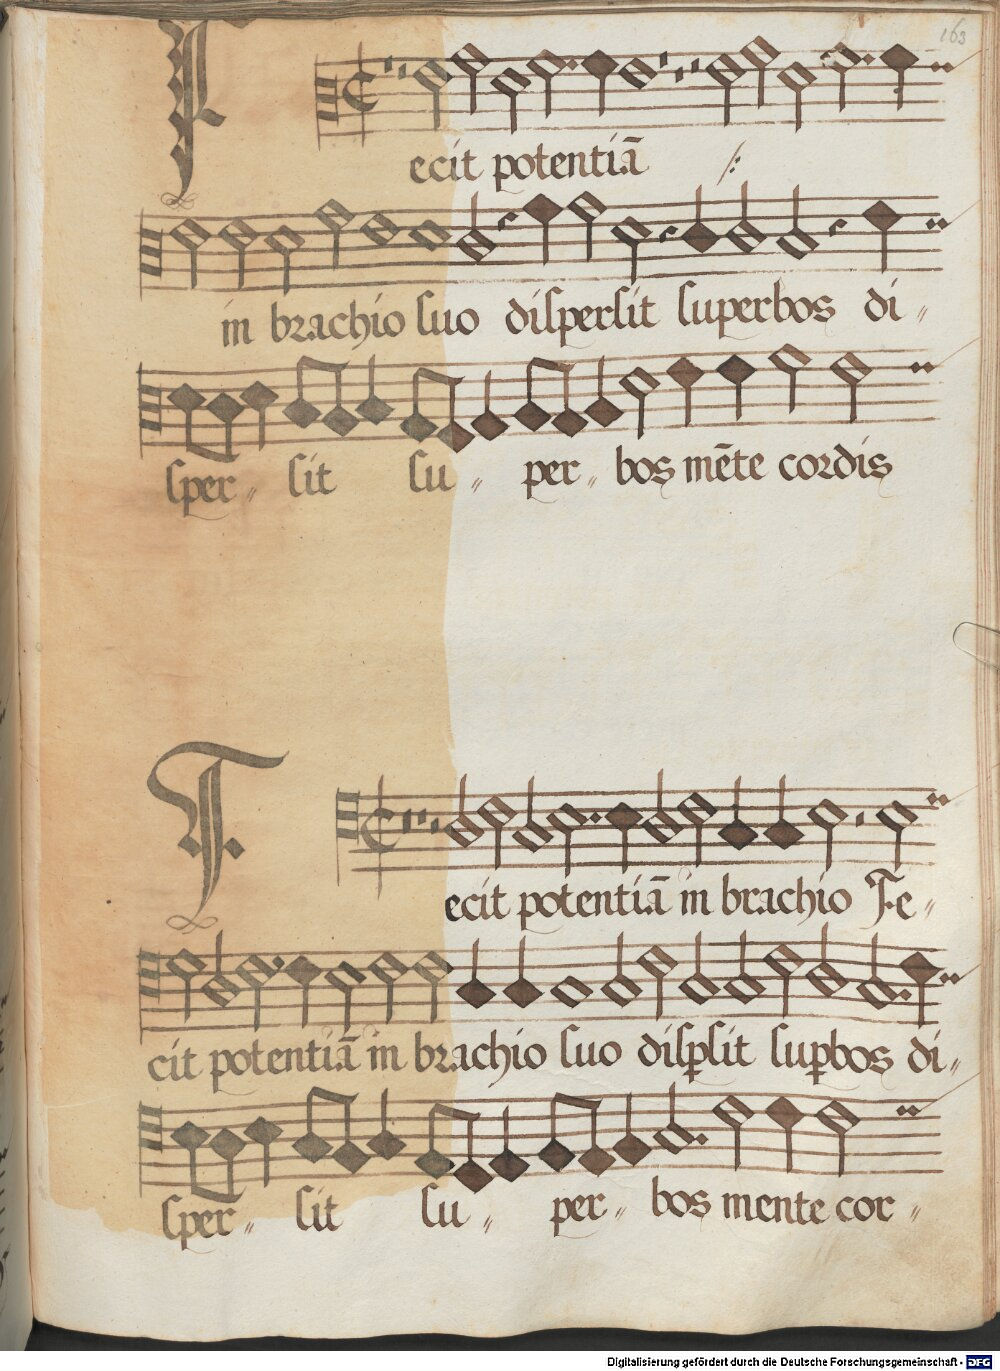 163
ecit potentiā
in brachio suo dispersit superbos di„
sper„ sit su„ per„ bos mēte cordis
T.
ecit potentiā in brachio Fe„
cit potentiā in brachio suo disꝑsit suꝑbos di„
sper„ sit su„ per„ bos mente cor„
Digitalisierung gefördert durch die Deutsche Forschungsgemeinschaft - DFG